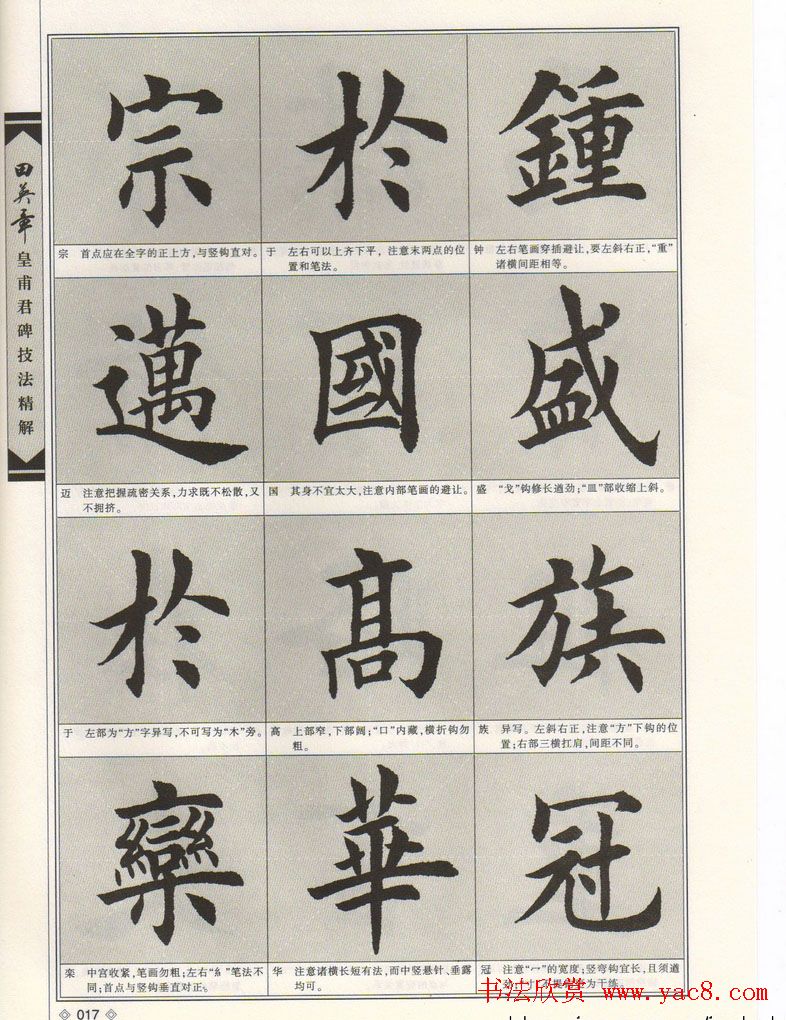 田英章
皇甫君碑技法精解
鍾
钟 左右笔画穿插避让,要左斜右正,“重”
诸横间距相等。
盛
盛 “戈”钩修长遒劲;“皿”部收缩上斜。
族
族 异写。左斜右正,注意“方”下钩的位
置;右部三横扛肩,间距不同。
冠
冠 注意“冖”的宽度;竖弯钩宜长,且须遒
为干练。
於
于 左右可以上齐下平,注意末两点的位
置和笔法。
國
国 其身不宜太大,注意内部笔画的避让。
高
高 上部窄,下部阔;“口”内藏,横折钩勿
粗。
華
华 注意诸横长短有法,而中竖悬针、垂露
均可。
宗
宗 首点应在全字的正上方,与竖钩直对。
邁
迈 注意把握疏密关系,力求既不松散,又
不拥挤。
於
于 左部为“方”字异写,不可写为“木”旁。
欒
栾 中宫收紧,笔画勿粗;左右“糹”笔法不
同;首点与竖钩垂直对正。
017
书法欣赏 www.yac8.com